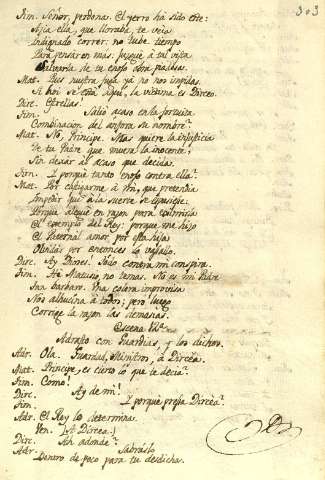 303
Tim. Señor, perdona. El yerro ha sido este:
Hacia ella, que lloraba te veia
Indignado correr: no tube tiempo
Para pensar en mas. Juzgué à tal vista
de tu enojo obra
Mat. Pues nuestra fuga yá no nos impidas.
Si hoi se está aqui, la victima es Dircea.
Dirc. Estrellas!
Tim. Salió acaso en la fortuita
Combinacion del anfora su nombre?
Mat. Nó, Principe. Mas quiere la injusticia
De tu Padre que muera la inocente,
Sin dexár al acaso que decida.
Tim. I porqué tanto enojo contra ella?
Mat. Por castigarme à mi, que pretendia
Impedir que à la suerte se expusiese:
Porque alegué en razon para eximirla
El exemplo del Rey: porque me hizo
El Paternal amor por esta hija
Olvidar por entonces lo vasallo.
Dirc. Ay Dioses! Todo contra mi conspira.
Tim. Ha Matusio, no temas. No es mi Padre
Tan barbaro. Una colera improvisa
Nos alucina à todos; pero luego
Corrige la razon las demasias.
Escena
Adrasto con Guardias, y los dichos.
Adr. Ola. Guardad, Ministros, à Dircea.
Mat. Principe, es cierto lo que te decia?
Tim. Como!
Dirc. Ay de mi!
Tim. I porqué presa Dircea?
Adr. El Rey lo determina.
Ven. (A Dircea)
Dirc. Ah adonde?
Adr. Sabráslo
Dentro de poco para tu desdicha.